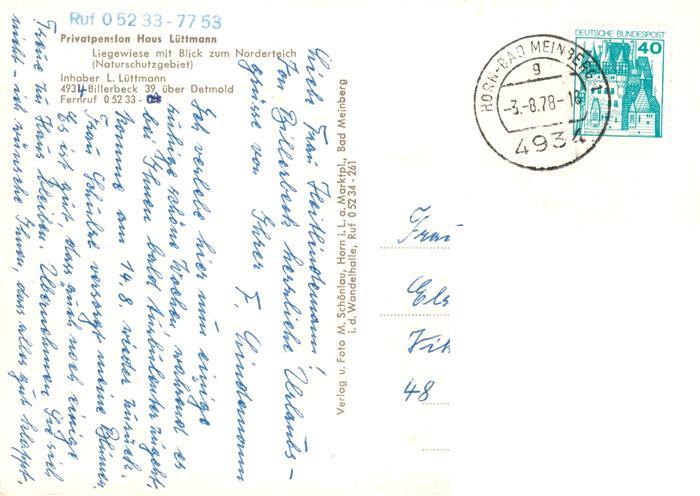 Ruf 0 52 33 - 77 53
Privatpension Haus Lüttmann
Liegewiese mit Blick zum Norderteich
(Naturschutzgebiet)
Inhaber L. Lüttmann
4934 Billerbeck 39 über Detmold
Fernruf 0 52 33 -
Liebe Frau
Von Billerbeck herzliche Urlaubs-
grüsse von Ihrer F. Lindemann
Ich verlebe hier nun einige
ruhige schöne Wochen, während es
bei Ihnen bald turbulenter zugeht,
komme am 14.8. wieder zurück.
Frau Schulze versorgt meine Blumen.
Es ist gut, dass auch noch einige
Freue zu Haus bleiben. Übernehmen Sie sich
nicht - ich wünsche Ihnen, dass alles gut klappt.
Verlag u. Foto M. Schönlau, Horn i. L. a. Marktpl., Bad Meinberg
i. d. Wandelhalle, Ruf 0 52 34 - 261
HORN-BAD MEINBERG 1
g
-3.-8.78-18
4934
DEUTSCHE BUNDESPOST
40
Frau
Els
Vik
48